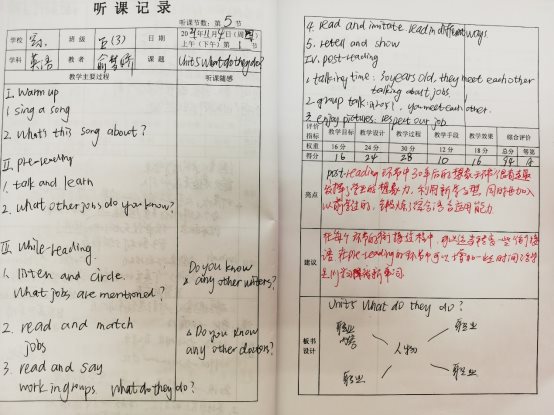 听课记录
听课节数：第 5 节
学校 班级 五(3) 日期 11月4日(周四)
上午(下午)第 1 节
学科 英语 教者 课题 Unit5 What do they do?
教学主要过程 听课随感
I. Warm up
1 sing a song
2. What's this song about?
II. Pre-reading
1. talk and learn
2. what other jobs do you know?
III. While-reading.
1. listen and circle.
What jobs are mentioned?
Do you know
any other writers?
2. read and match
jobs
Do you know
any other doctors?
3. read and say
work in groups. what do they do?
4. read and imitate. read in different ways
5. retell and show
IV. post-reading
1. talking time: 30 years old, they meet each other
talking about jobs.
2. group talk: in or 1. you meet each other.
3. enjoy pictures. respect our job.
评价指标 教学目标 教学设计 教学过程 教学手段 教学效果 综合评价
权重 16分 24分 30分 12分 18分 总分 等第
得分 16 24 28 10 16 94 A
亮点
post-reading 环节中30年后的想象
发挥了学生的想象力，利用新学句型，同时再加入
以前学过的，锻炼了综合语言应用能力.
建议
在每个环节的衔接过程中，可以
语 在pre-reading的环节中可以 一些时间
新单词
板书设计
Unit5 What do they do?
职业
职业
人物
职业
职业